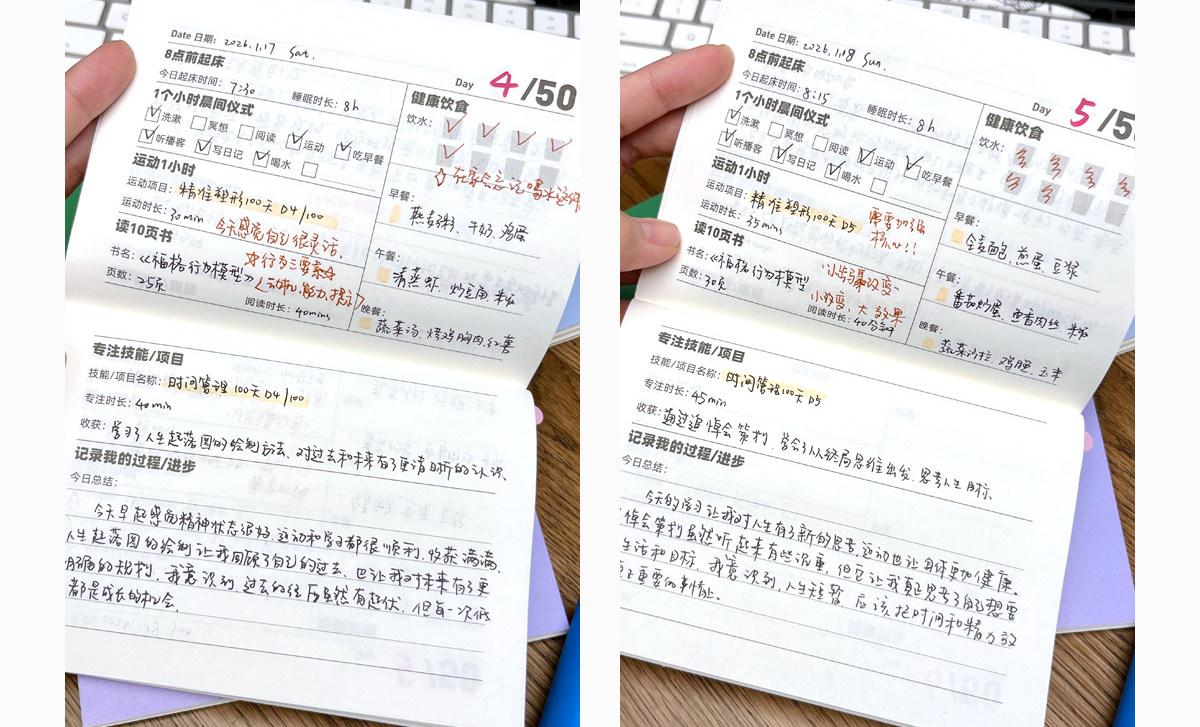 Date 日期: 2026.1.17 Sat.
8点前起床
Day 4/50
今日起床时间: 7:30 睡眠时长: 8h
1个小时晨间仪式
洗漱 冥想 阅读 运动 吃早餐
听播客 写日记 喝水
运动1小时
运动项目: 精准塑形100天 D4/100
运动时长: 30min 今天感觉自己很灵活.
读10页书
☆行为三要素☆
书名: 《福格行为模型》
<动机, 能力, 提示>
页数: 25页
阅读时长: 40mins
健康饮食
饮水:
在家会忘记喝水这件
早餐:
燕麦粥、牛奶、鸡蛋
午餐:
清蒸虾、炒豆角、米饭
晚餐:
蔬菜汤、烤鸡胸肉、红薯
专注技能/项目
技能/项目名称: 时间管理100天 D4/100
专注时长: 40min
收获: 学习了人生起落图的绘制方法、对过去和未来有了更清晰的认识.
记录我的过程/进步
今日总结:
今天早起感觉精神状态很好, 运动和学习都很顺利, 收获满满.
人生起落图的绘制让我回顾了自己的过去、也让我对未来有了更
明确的规划. 我意识到过去的经历虽然有起伏, 但每一次低
都是成长的机会.
Date 日期: 2026.1.18 Sun.
8点前起床
Day 5/5
今日起床时间: 8:15 睡眠时长: 8h
1个小时晨间仪式
洗漱 冥想 阅读 运动 吃早餐
听播客 写日记 喝水
运动1小时
运动项目: 精准塑形100天 D5
运动时长: 35mins
需要加强
核心!!
读10页书
书名: 《福格行为模型》
小步骤改变-
页数: 30页
小改变、大效果
阅读时长: 40分钟
健康饮食
饮水:
早餐:
全麦面包, 煎蛋, 豆浆
午餐:
番茄炒蛋, 鱼香肉丝 米饭
晚餐:
蔬菜沙拉, 鸡腿, 玉米
专注技能/项目
技能/项目名称: 时间管理100天 D5
专注时长: 45min
收获: 通过追悼会策划, 学会了从终局思维出发, 思考人生目标.
记录我的过程/进步
今日总结:
今天的学习让我对人生有了新的思考, 运动也让身体更加健康.
悼会策划虽然听起来有些沉重, 但它让我真正思考了自己想要
生活和目标. 我意识到, 人生短暂, 应该把时间和精力放
重要的事情上.